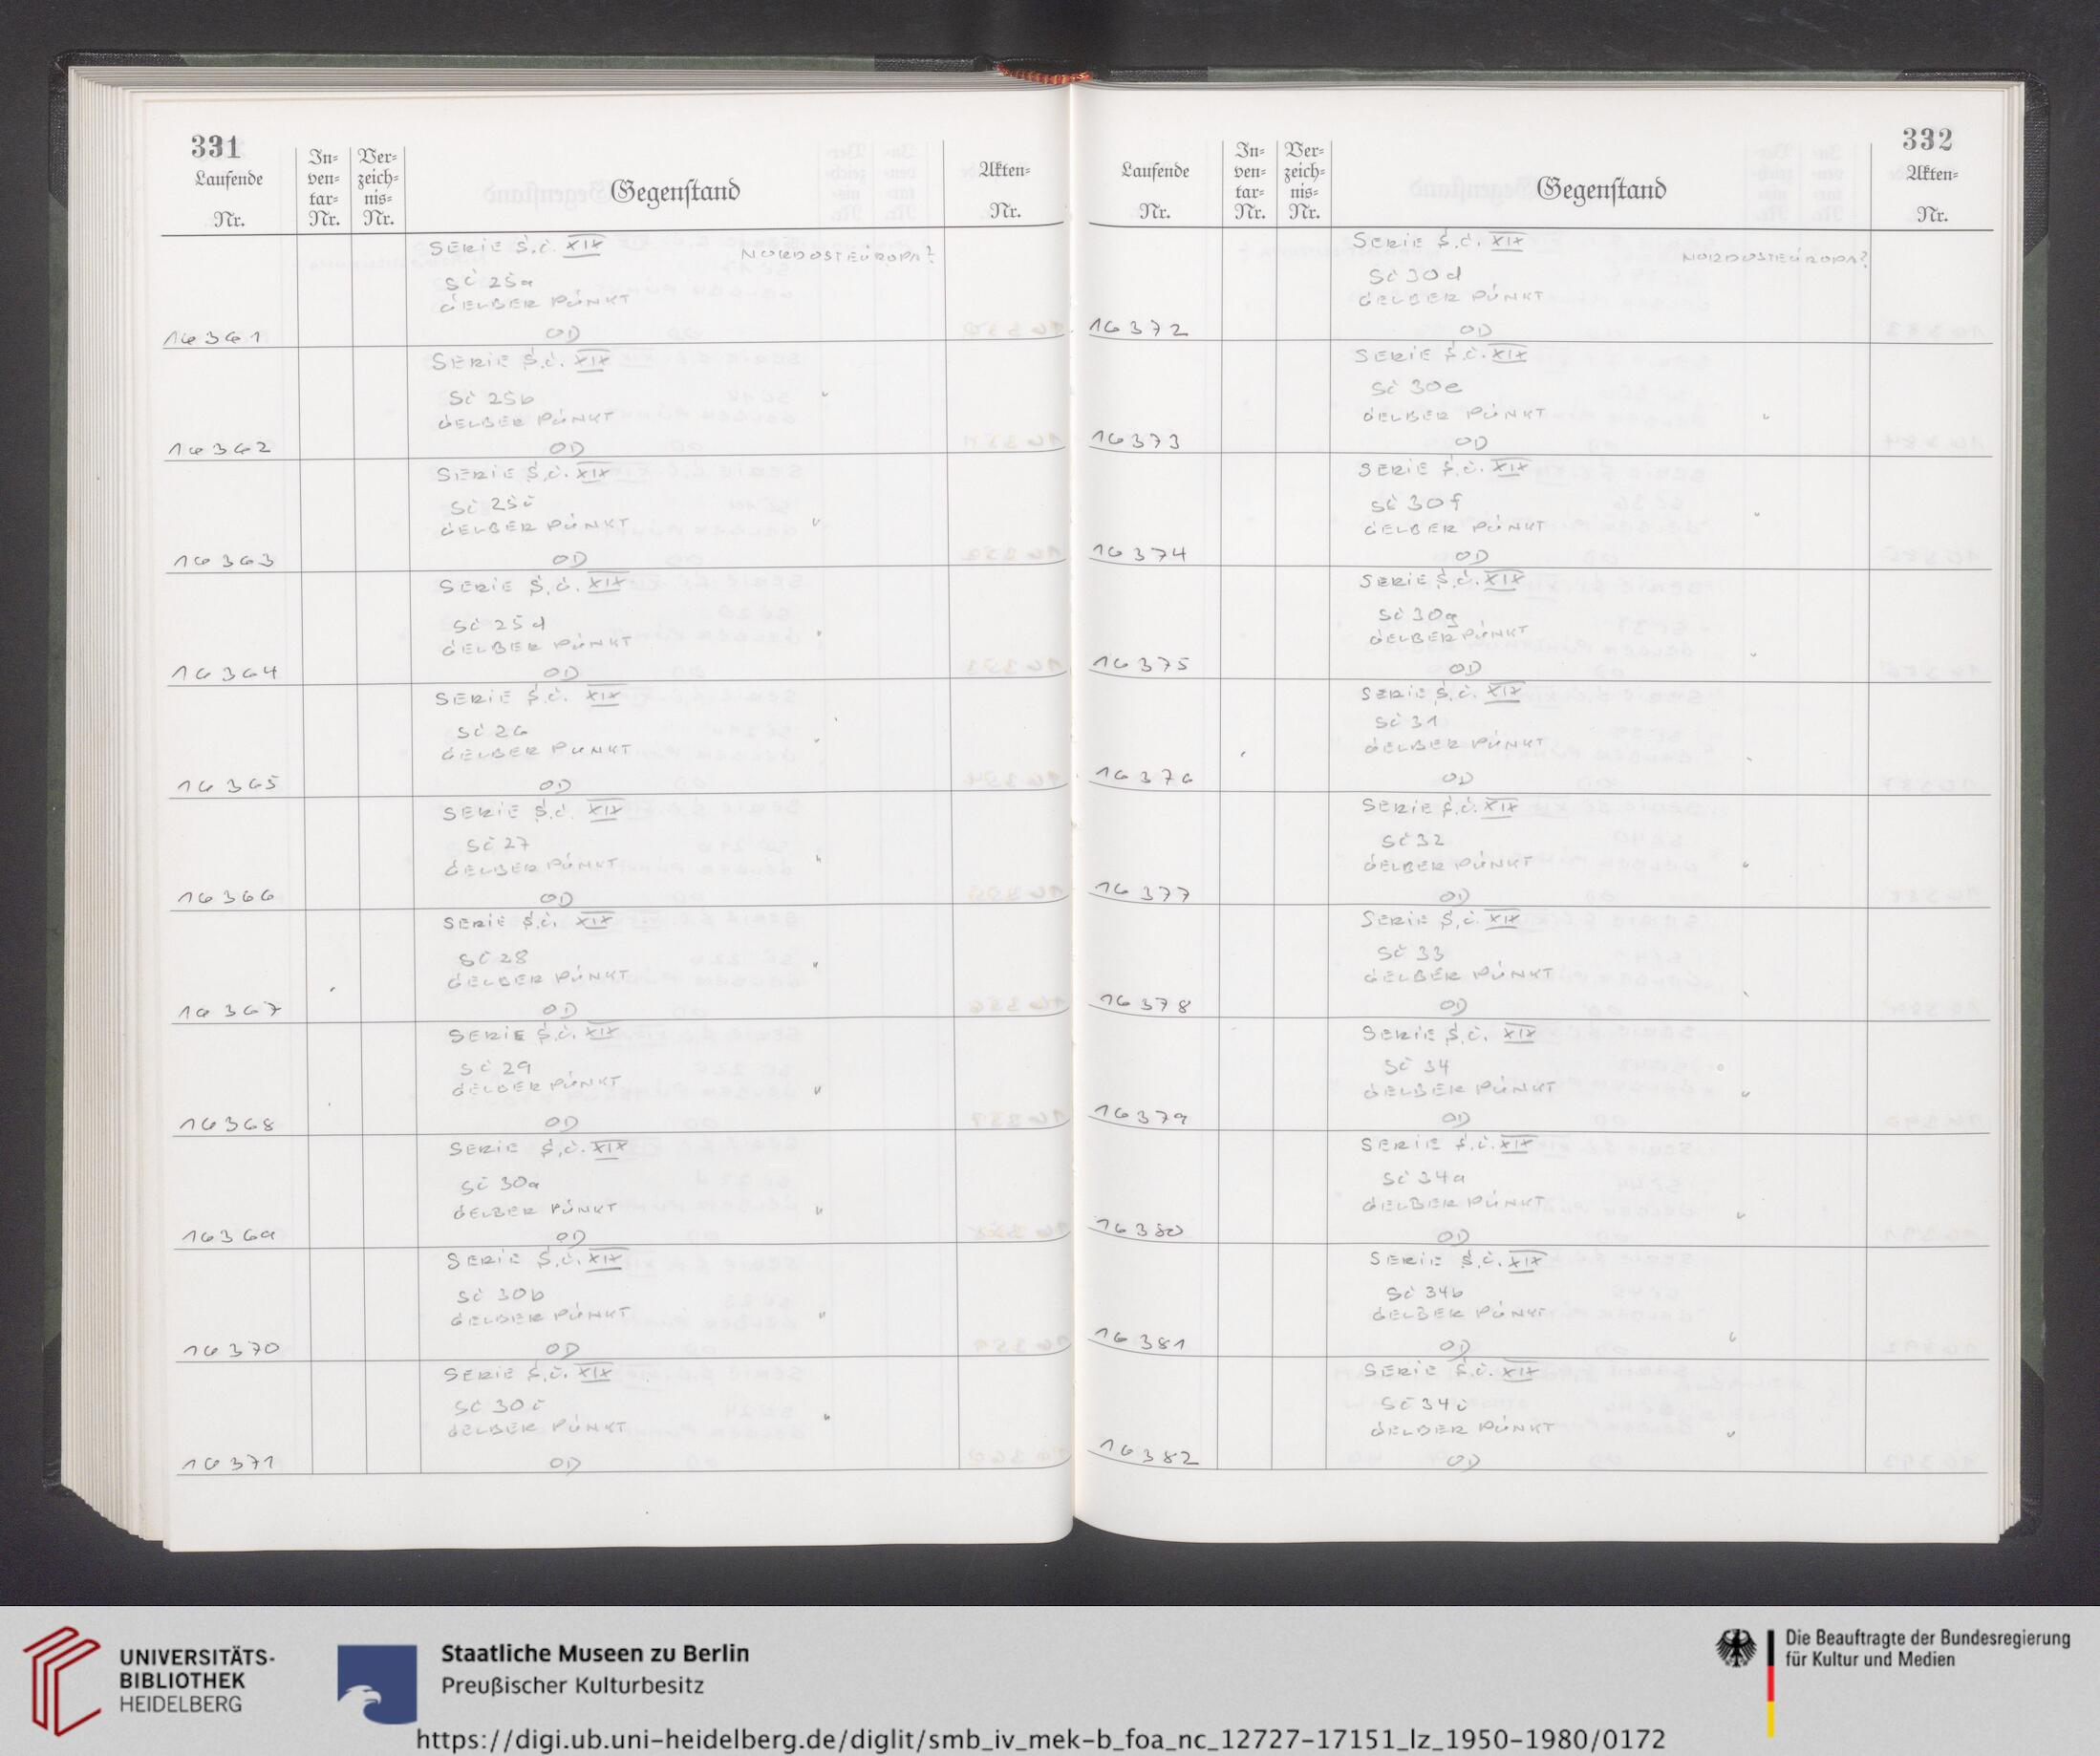 331
Laufende Nr.
In-ven-tar-Nr.
Ver-zeich-nis-Nr.
Gegenstand
Akten-Nr.
SERIE S.C. XIX
NORDOSTEUROPA?
SC 25a
GELBER PUNKT
16361 OD
SERIE S.C. XIX
SC 25b "
GELBER PUNKT
16362 OD
SERIE S.C. XIX
SC 25c
GELBER PUNKT "
16363 OD
SERIE S.C. XIX
SC 25d
GELBER PUNKT "
16364 OD
SERIE S.C. XIX
SC 26
GELBER PUNKT "
16365 OD
SERIE S.C. XIX
SC 27
GELBER PUNKT "
16366 OD
SERIE S.C. XIX
SC 28
GELBER PUNKT "
16367 OD
SERIE S.C. XIX
SC 29
GELBER PUNKT "
16368 OD
SERIE S.C. XIX
SC 30a
GELBER PUNKT "
16369 OD
SERIE S.C. XIX
SC 30b
GELBER PUNKT "
16370 OD
SERIE S.C. XIX
SC 30c
GELBER PUNKT "
16371 OD
332
Laufende Nr.
In-ven-tar-Nr.
Ver-zeich-nis-Nr.
Gegenstand
Akten-Nr.
SERIE S.C. XIX
NORDOSTEUROPA?
SC 30d
GELBER PUNKT
16372 OD
SERIE S.C. XIX
SC 30e
GELBER PUNKT "
16373 OD
SERIE S.C. XIX
SC 30f
GELBER PUNKT "
16374 OD
SERIE S.C. XIX
SC 30g
GELBER PUNKT "
16375 OD
SERIE S.C. XIX
SC 31
GELBER PUNKT "
16376 OD
SERIE S.C. XIX
SC 32
GELBER PUNKT "
16377 OD
SERIE S.C. XIX
SC 33
GELBER PUNKT "
16378 OD
SERIE S.C. XIX
SC 34
GELBER PUNKT "
16379 OD
SERIE S.C. XIX
SC 34a
GELBER PUNKT "
16380 OD
SERIE S.C. XIX
SC 34b
GELBER PUNKT "
16381 OD
SERIE S.C. XIX
SC 34c
GELBER PUNKT "
16382 OD
UNIVERSITÄTS-
BIBLIOTHEK
HEIDELBERG
Staatliche Museen zu Berlin
Preußischer Kulturbesitz
Die Beauftragte der Bundesregierung
für Kultur und Medien
https://digi.ub.uni-heidelberg.de/diglit/smb_iv_mek-b_foa_nc_12727-17151_lz_1950-1980/0172